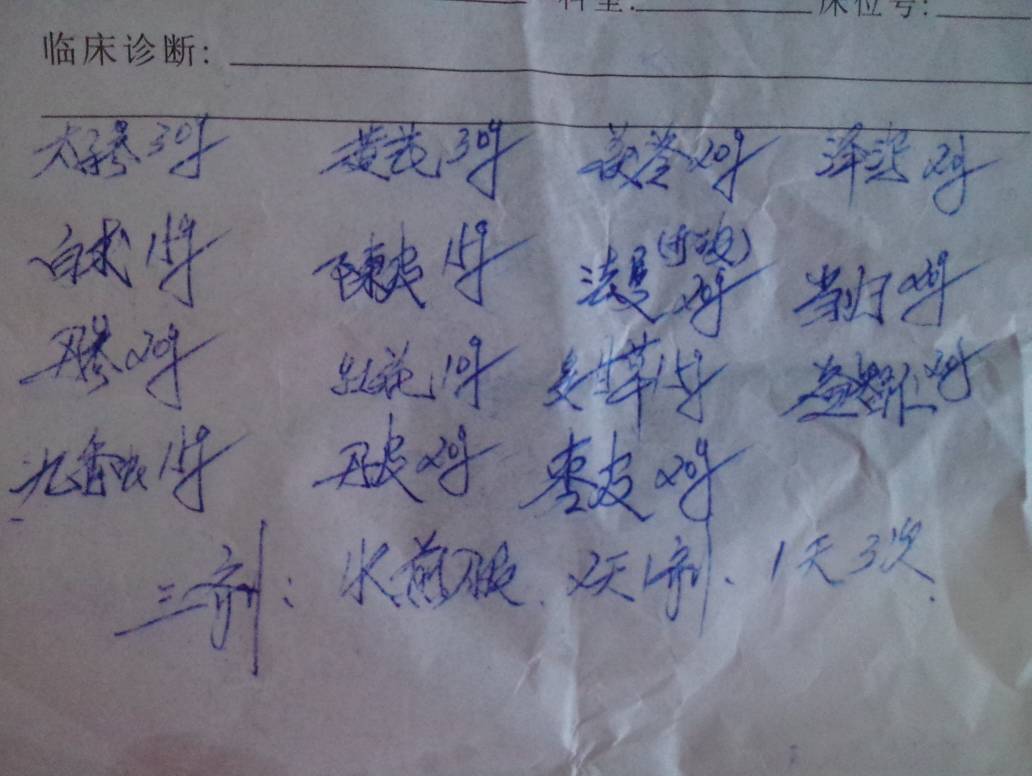 科室: 床位号:
临床诊断:
太子参30g 黄芪30g 茯苓20g 泽泻20g
白术15g 陈皮15g 法夏20g 当归20g
丹参20g 红花10g 炙甘草15g 益智仁20g
九香虫15g 丹皮20g 枣皮20g
三剂: 水煎服. 2天1剂. 1天3次.